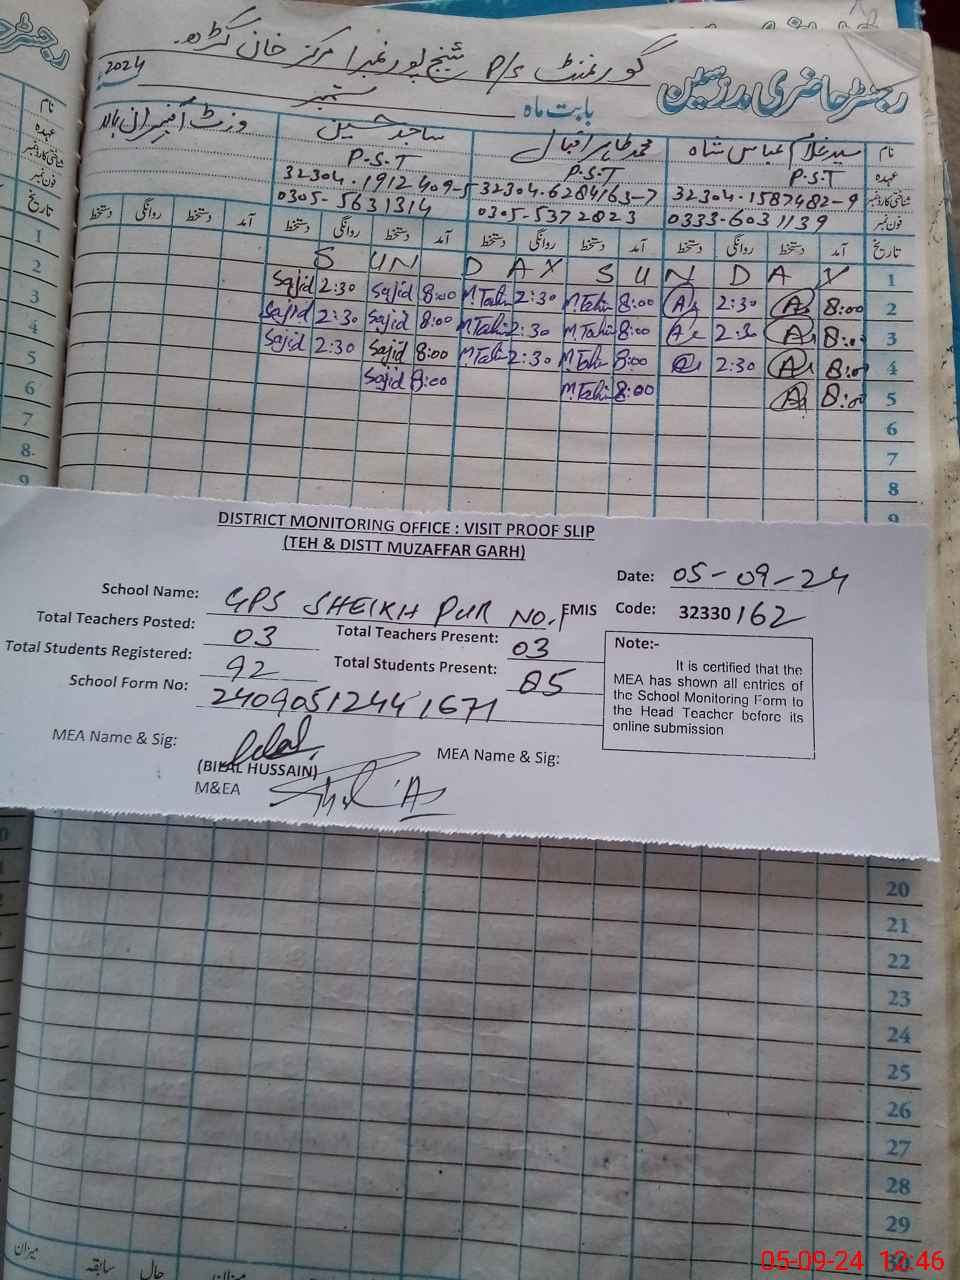 گورنمنٹ P/S شیخ پور نمبر 1 مرکز خان گڑھ
رجسٹر حاضری مدرسین
بابت ماہ ستمبر 2024
نام سید غلام عباس شاہ محمد طاہر اقبال ساجد حسین
عہدہ P.S.T P.S.T P.S.T
شناختی کارڈ نمبر 32304.1587482-9 32304.6284163-7 32304.1912409-5
فون نمبر 0333-6031139 0305-5372823 0305-5631314
تاریخ آمد دستخط روانگی دستخط آمد دستخط روانگی دستخط آمد دستخط روانگی دستخط آمد دستخط روانگی دستخط
1 S U N D A Y S U N D A X
2 8:00 2:30 8:00 M.Tahir 2:30 M.Tahir 8:00 Sajid 2:30 Sajid
3 8:00 2:30 8:00 M.Tahir 2:30 M.Tahir 8:00 Sajid 2:30 Sajid
4 8:00 2:30 8:00 M.Tahir 2:30 M.Tahir 8:00 Sajid 2:30 Sajid
5 8:00 8:00 M.Tahir 8:00 Sajid
6
7
8
9
DISTRICT MONITORING OFFICE : VISIT PROOF SLIP
(TEH & DISTT MUZAFFAR GARH)
Date: 05-09-24
School Name: GPS SHEIKH PUR NO.1 EMIS Code: 32330162
Total Teachers Posted: 03 Total Teachers Present: 03
Total Students Registered: 92 Total Students Present: 85
School Form No: 24090512441671
Note:-
It is certified that the
MEA has shown all entries of
the School Monitoring Form to
the Head Teacher before its
online submission
MEA Name & Sig: MEA Name & Sig:
(BILAL HUSSAIN)
M&EA
20
21
22
23
24
25
26
27
28
29
30
میزان سابقہ حال میزان
05-09-24 12:46